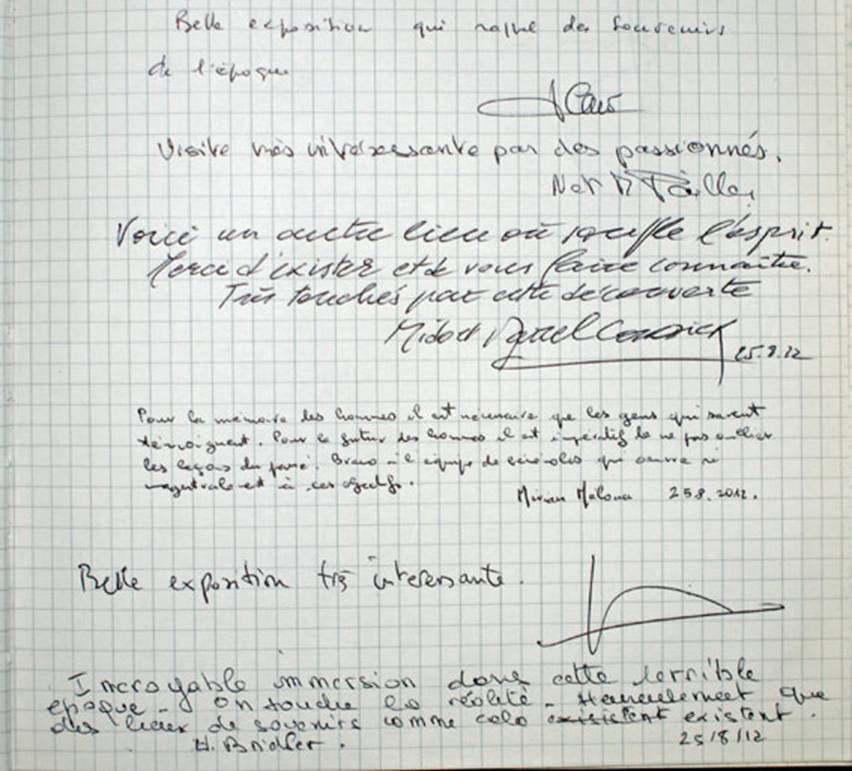 Belle exposition qui rappel des souvenirs
de l'époque
Visite très intéressante par des passionnés.
Voici un autre lieu où souffle l'esprit.
Merci d'exister et de vous faire connaître.
Très touchés par cette découverte
25.8.12
Pour la mémoire des hommes il est nécessaire que les gens qui savent
témoignent. Pour le futur des hommes il est impératif de ne pas oublier
les leçons du passé. Bravo à l'équipe de qui œuvre si
magistralement à ces objectifs.
25 8. 2012.
Belle exposition très intéressante.
Incroyable immersion dans cette terrible
époque - on touche la réalité - Heureusement que
des lieux de souvenirs comme cela existent existent.
25/8/12